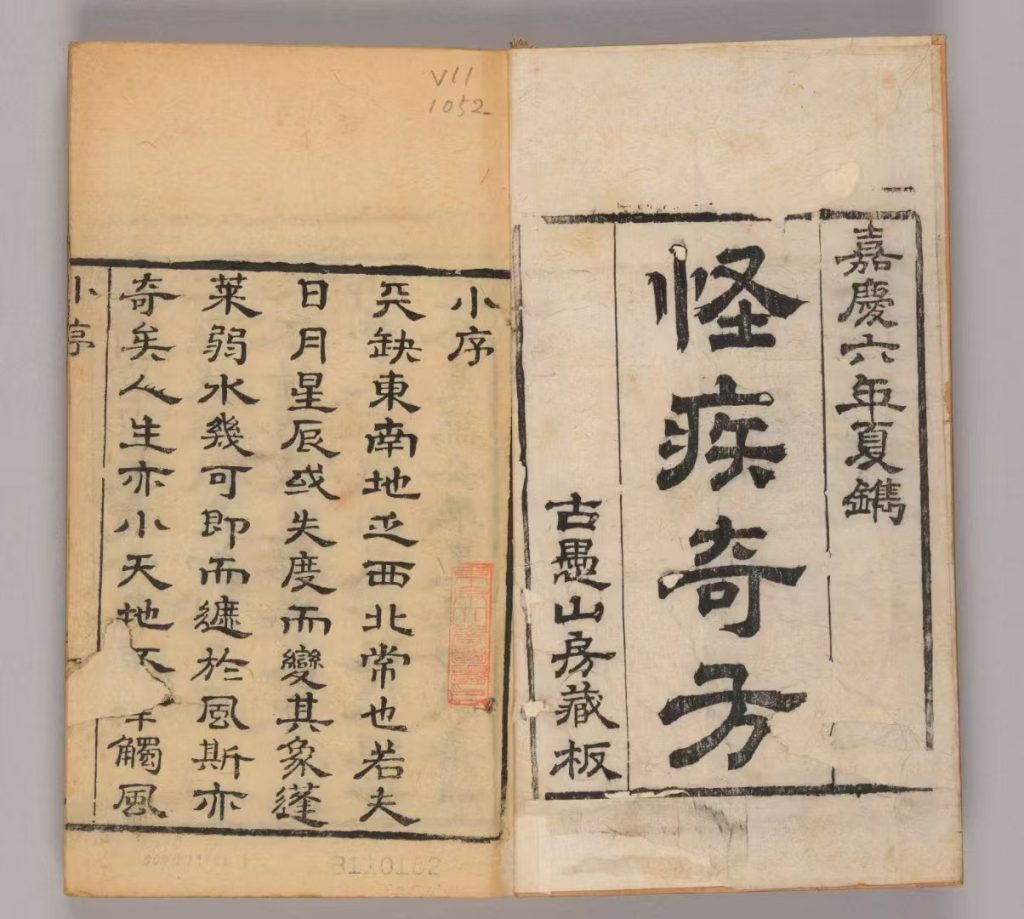 嘉慶六年夏鐫
怪疾奇方
古愚山房藏板
VII
1052
小序
天缺東南地西北常也若夫
日月星辰或失度而變其象蓬
萊弱水幾可即而遮於風斯亦
奇矣人生亦小天地不觸風
小序
3110162